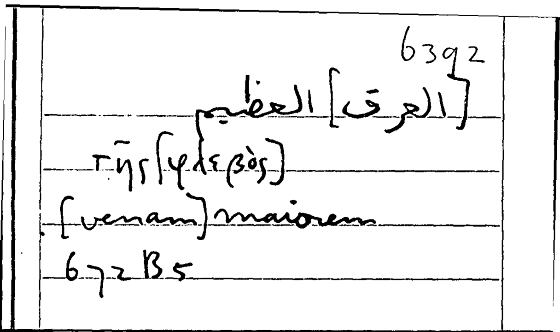 639a2
[العرق] العظيم
τῆς [φλεβὸς]
[venam] maiorem
672 B5